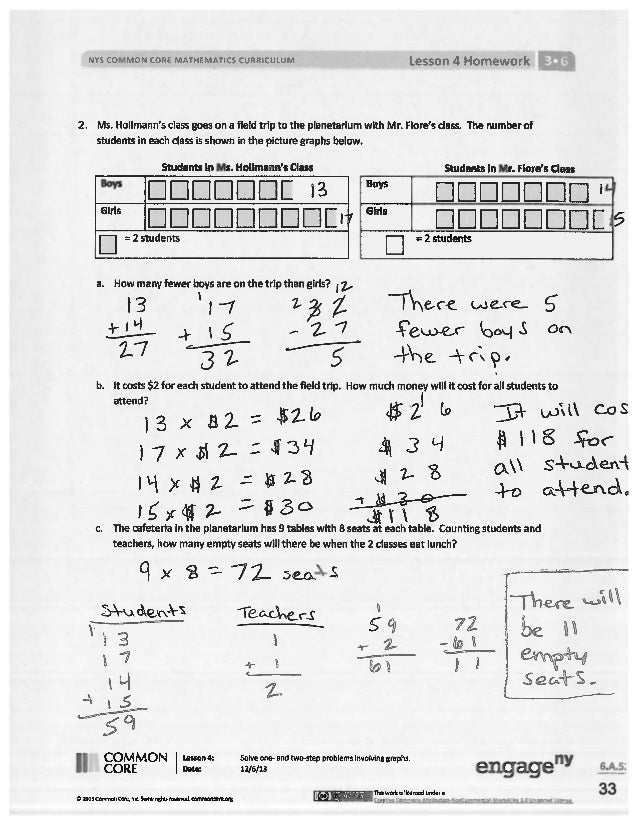 NYS COMMON CORE MATHEMATICS CURRICULUM
Lesson 4 Homework 3•6
2. Ms. Hollmann's class goes on a field trip to the planetarium with Mr. Fiore's class. The number of
students in each class is shown in the picture graphs below.
Students in Ms. Hollmann's Class
Boys 13
Girls 17
= 2 students
Students in Mr. Fiore's Class
Boys 14
Girls 15
= 2 students
a. How many fewer boys are on the trip than girls?
13
+ 14
27
1
17
+ 15
32
2 12
32
- 27
5
There were 5
fewer boys on
the trip.
b. It costs $2 for each student to attend the field trip. How much money will it cost for all students to
attend?
13 x $2 = $26
17 x $2 = $34
14 x $2 = $28
15 x $2 = $30
1
$26
$34
$28
+ $30
$118
It will cos
$118 for
all student
to attend.
c. The cafeteria in the planetarium has 9 tables with 8 seats at each table. Counting students and
teachers, how many empty seats will there be when the 2 classes eat lunch?
9 x 8 = 72 seats
Students
1
13
17
14
+ 15
59
Teachers
1
+ 1
2
1
59
+ 2
61
72
- 61
11
There will
be 11
empty
seats.
COMMON CORE
Lesson 4: Solve one- and two-step problems involving graphs.
Date: 12/6/13
engage ny
6.A.5
33
© 2013 Common Core, Inc. Some rights reserved. commoncore.org
This work is licensed under a
Creative Commons Attribution-NonCommercial-ShareAlike 3.0 Unported License.